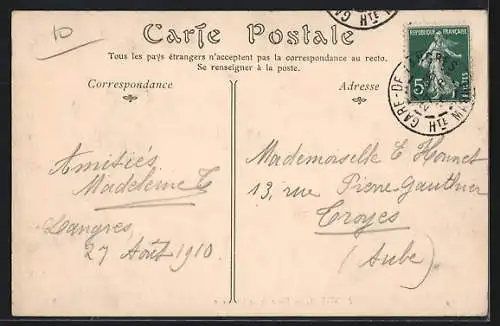 10
Carte Postale
Tous les pays étrangers n'acceptent pas la correspondance au recto.
Se renseigner à la poste.
Correspondance
Adresse
REPUBLIQUE FRANÇAISE
5
GARE-DE
Hte M
Amitiés
Madeleine
Langres,
27 Août 1910.
Mademoiselle E
13, rue Pierre Gauthier
Troyes
(Aube)